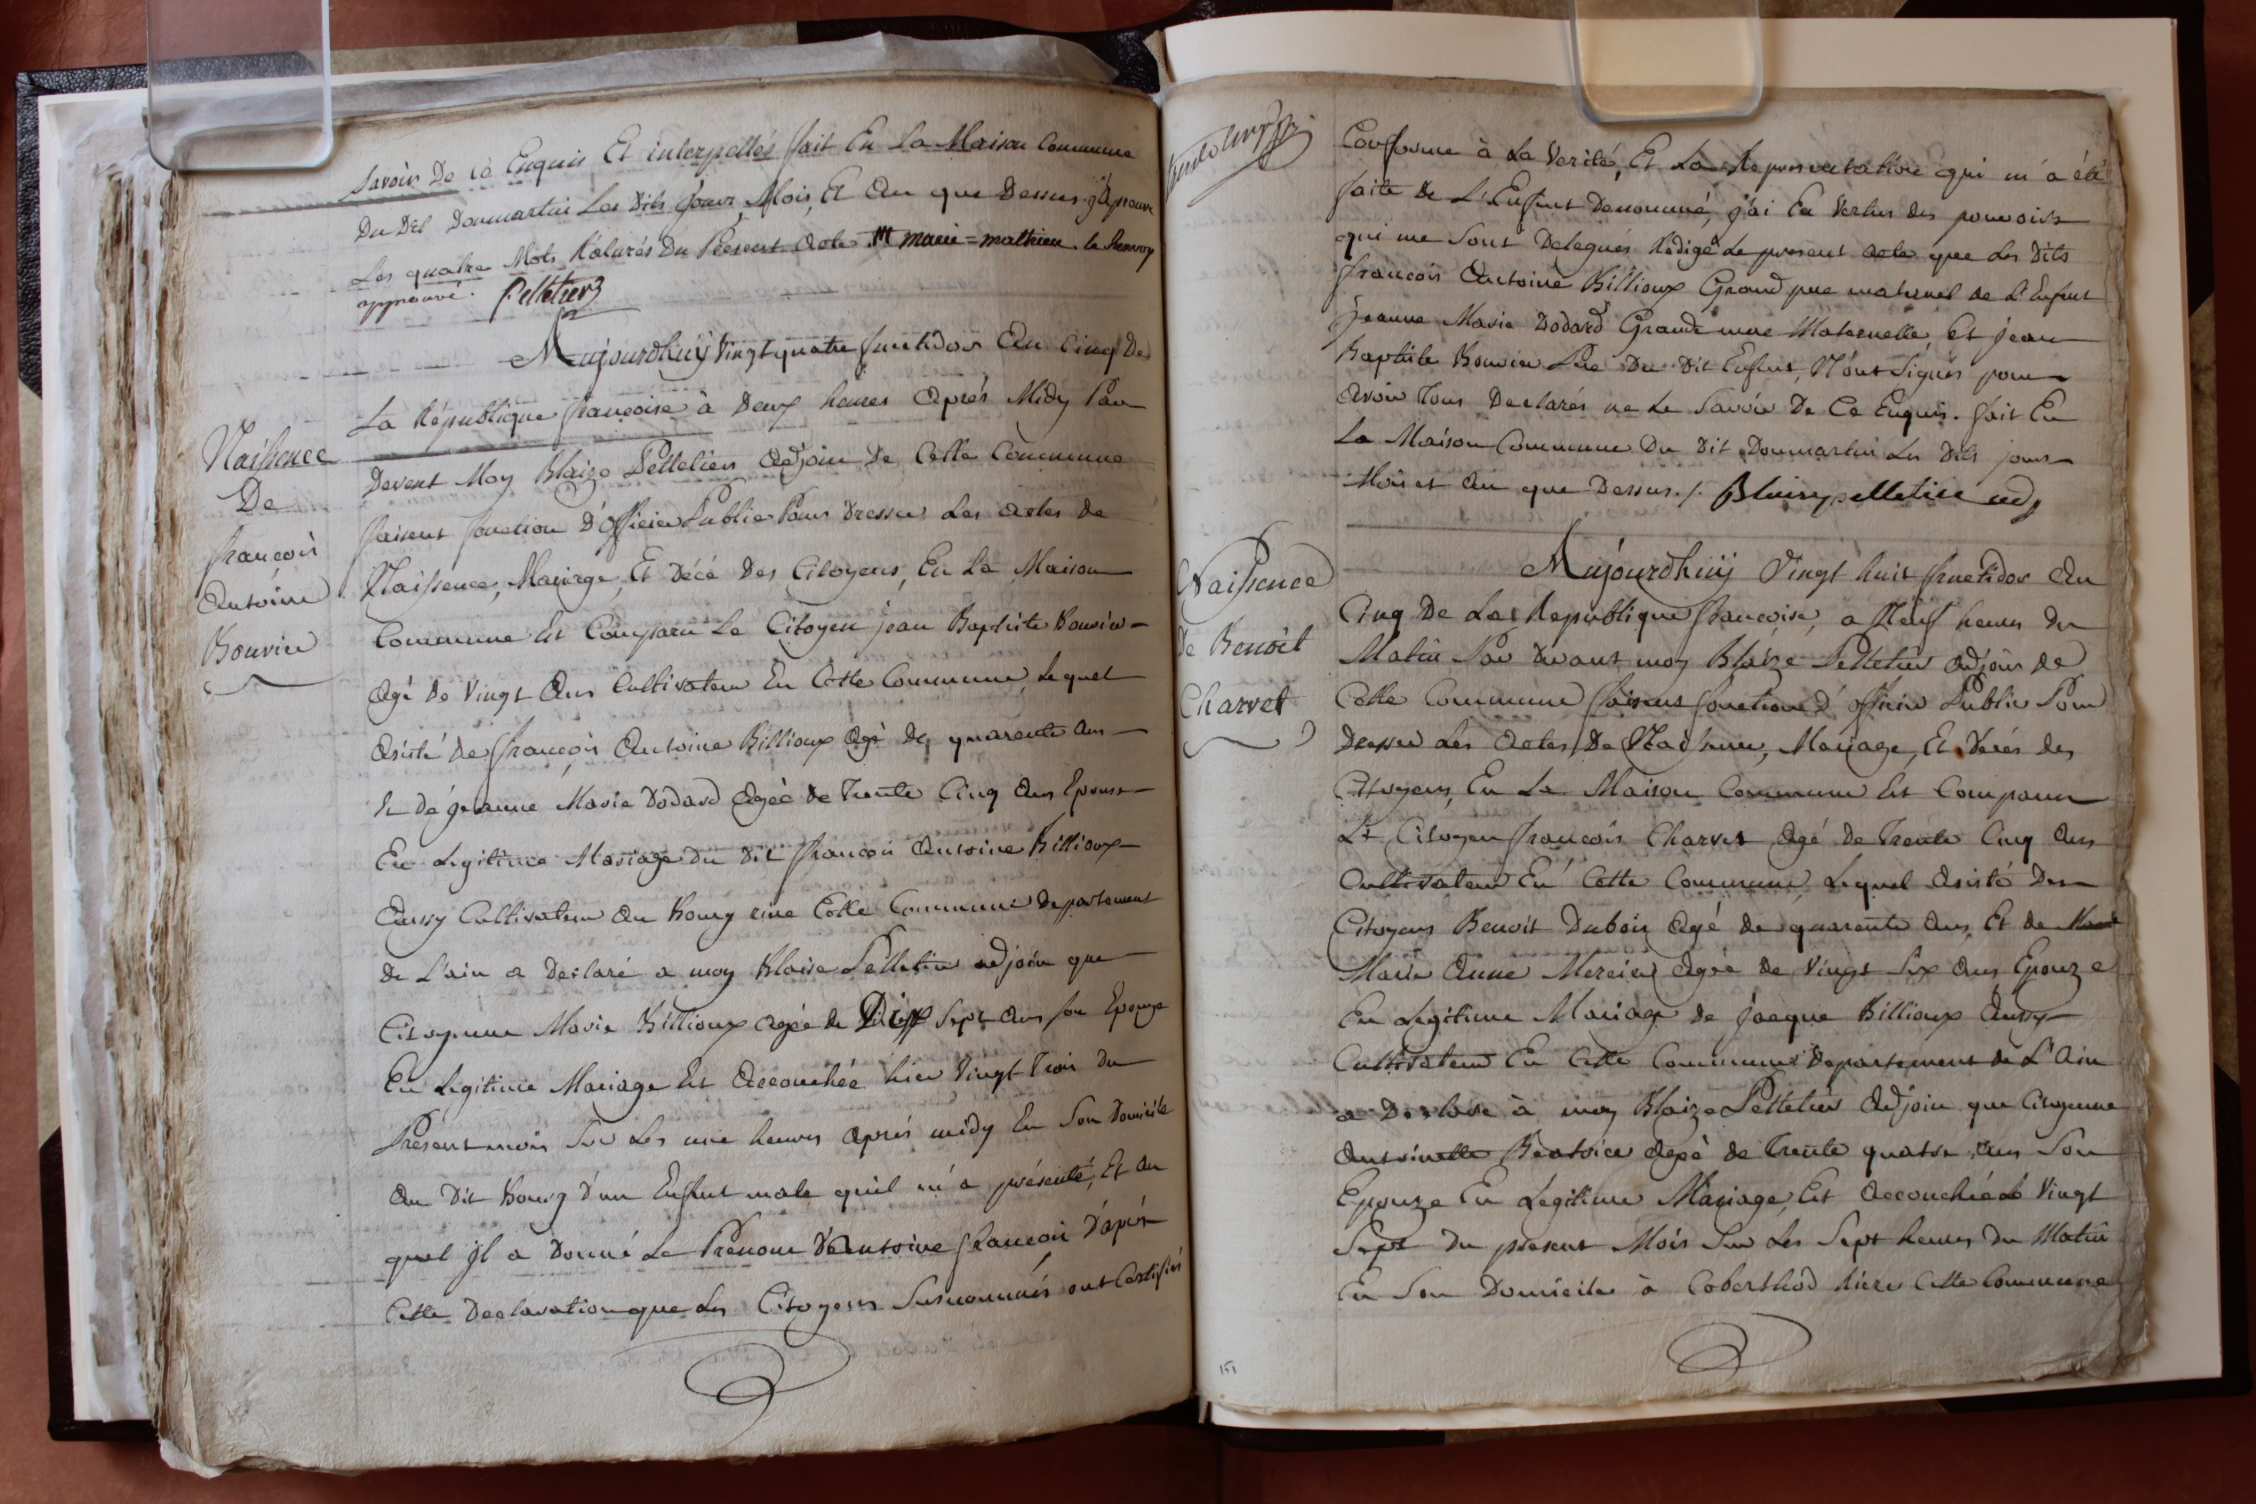 Savoir De cè Enquis Et interpellés fait En La Maison Commune
Du Dit Dommartin Les Dits Jour, Mois, Et An que Dessus
Les quatre Mots Raturés Du Present Acte marie = mathieu. le Renvoy
approuvé. Pelletier
Aujourdhuÿ Vingt quatre fructidor An Cinq De
La République françoise à Deux heures Après Midy Par
Devent Moy Blaize Pelletier Adjoin De Cette Commune
faisent fonction D'officier Public Pour Dresser Les Actes De
Naissence, Mariage, Et Décé Des Citoyens, En La Maison
Commune Est Comparu Le Citoyen jean Baptiste Bouvier
Agé De Vingt Ans Cultivateur En Cette Commune, Lequel
Asisté De François Antoine Billioux Agé De quarente ans
Et De jeanne Marie Dodard Agée De Trente Cinq Ans Epouse
En Legitime Mariage Du Dit François Antoine Billioux
Aussy Cultivateur Au Bourg rière Cette Commune Departement
De L'ain a Declaré a moy Blaise Pelletier adjoin que
Citoyenne Marie Billioux Agée de Dix Sept Ans son Epouze
En Legitime Mariage Est Accouchée hier Vingt Trois Du
Présent mois Sur Les une heures après midy En Son Domicile
Au Dit Bourg D'un Enfent male quil m'a présenté, Et Au
quel jl a Donné Le Prenom D'Antoine François D'après
Cette Declaration que Les Citoyens Susnommés ont Certifiés
Naissence
De
François
Antoine
Bouvier
Conforme à La Verité, Et La Representation qui m'a été
faite De L'Enfent Denommé, j'ai En Vertus Des pouvoirs
qui me Sont Delegués Rédigé Le present acte que Les Dits
François Antoine Billioux Grand pere maternel De L'Enfent
Jeanne Marie Dodard Grande mere Maternelle, Et jean
Baptiste Bouvier Pere Du Dit Enfent, N'ont Signés pour
Avoir Tous Declarés ne Le Savoir De Ce Enquis. fait En
La Maison Commune Du Dit Dommartin Les Dits jour
Mois et An que Dessus./. Blaize pelletier adj
Aujourdhuÿ Vingt huit fructidor An
Cinq De La Republique françoise, a Neuf heures Du
Matin Par Devant moy Blaize Pelletier Adjoin De
Cette Commune faisent fonction D'officier Public Pour
Dresser Les Actes De Naissence, Mariage, Et Decés Des
Citoyens, En La Maison Commune Est Comparu
Le Citoyen François Charvet Agé De Trente Cinq Ans
Cultivateur En Cette Commune, Lequel Asisté Des
Citoyens Benoit Dubois Agé De quarente Ans, Et De
Marie Anne Mercier Agée De Vingt Six Ans Epouze
En Legitime Mariage De Jacque Billioux Aussy
Cultivateur En Cette Commune Departement De L'Ain
a Declaré à moy Blaize Pelletier Adjoin que Citoyenne
Antoinette Béatrice Agée De Trente quatre Ans Son
Epouze En Legitime Mariage, Est Accouchée Le Vingt
Sept Du present Mois Sur Les Sept heures Du Matin
En Son Domicile à Coberthod rière Cette Commune
Naissence
De Benoît
Charvet
151